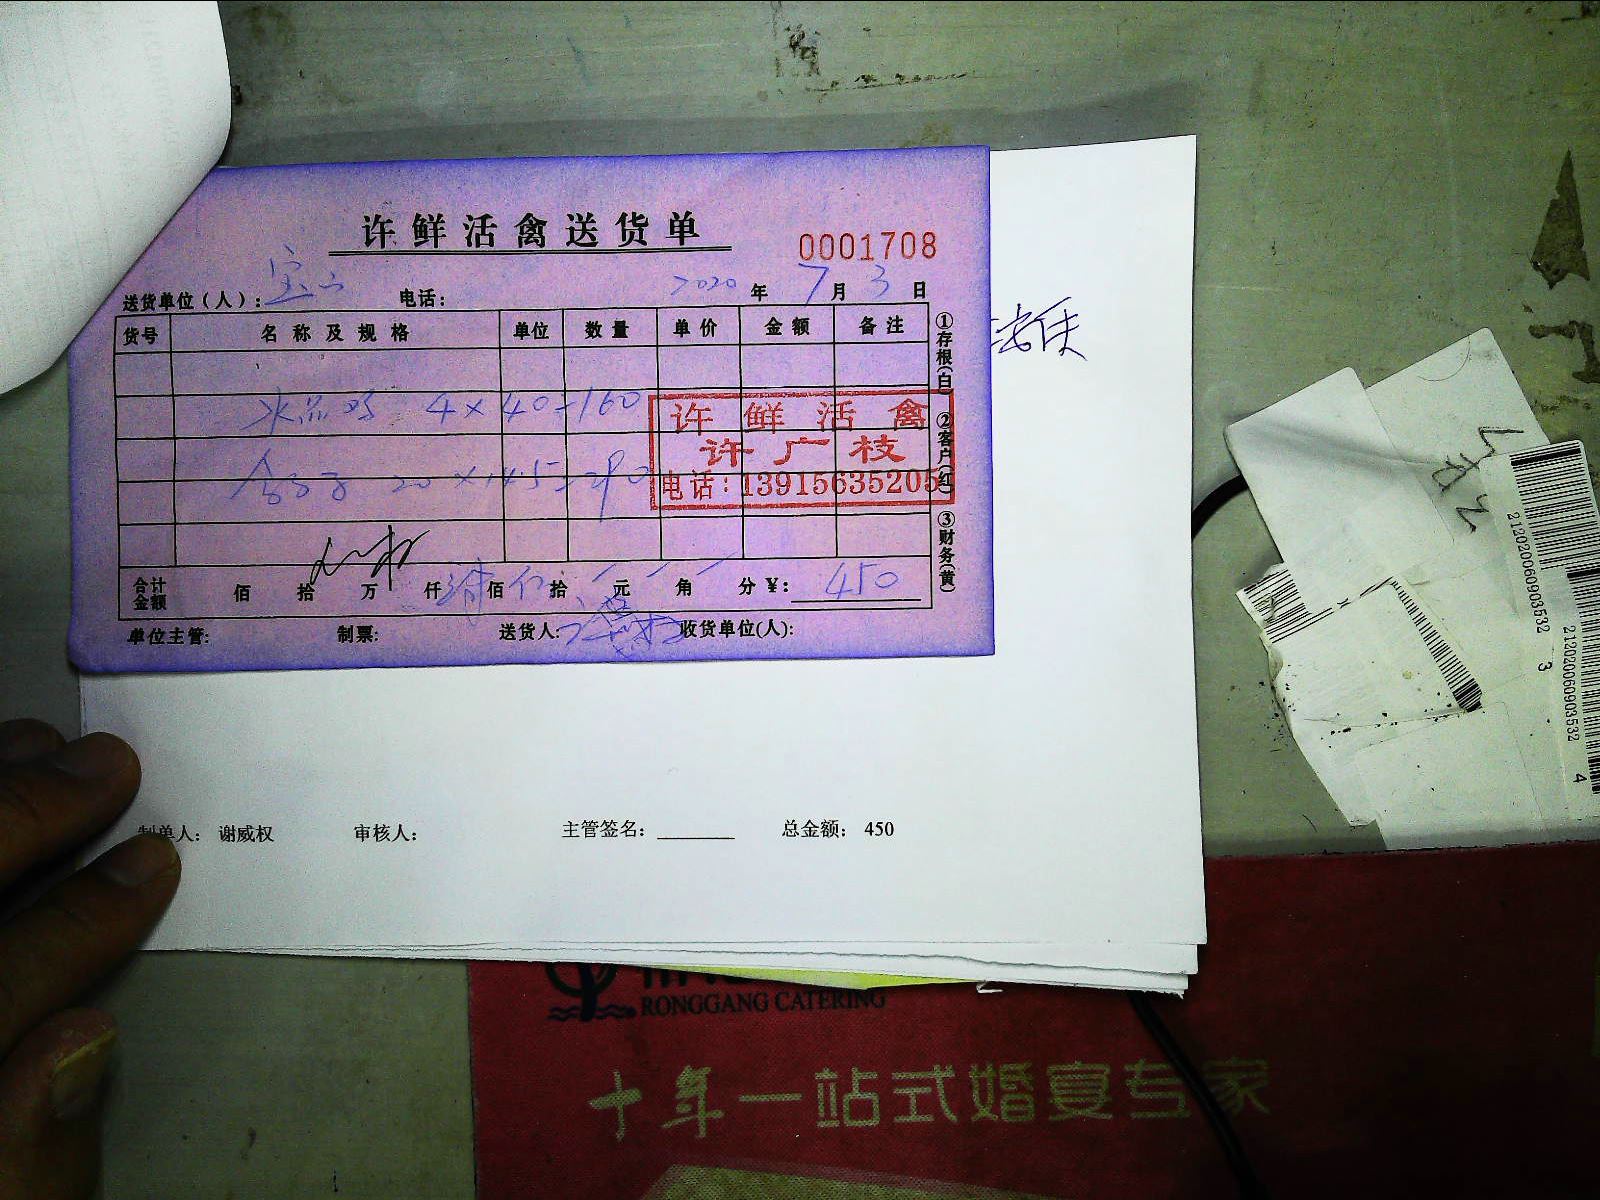 许鲜活禽送货单
0001708
送货单位（人）：宝 电话： 2020 年 7 月 3 日
货号 名称及规格 单位 数量 单价 金额 备注
4×40=160
20×14.5=290
许鲜活禽
许广枝
电话：13915635205
①存根(白) ②客户(红) ③财务(黄)
合计金额 佰 拾 万 仟 佰 拾 元 角 分 ¥：450
单位主管： 制票： 送货人： 收货单位(人)：
制单人： 谢威权 审核人： 主管签名： 总金额： 450
212020060903532 3
212020060903532 4
RONGGANG CATERING
十年一站式婚宴专家